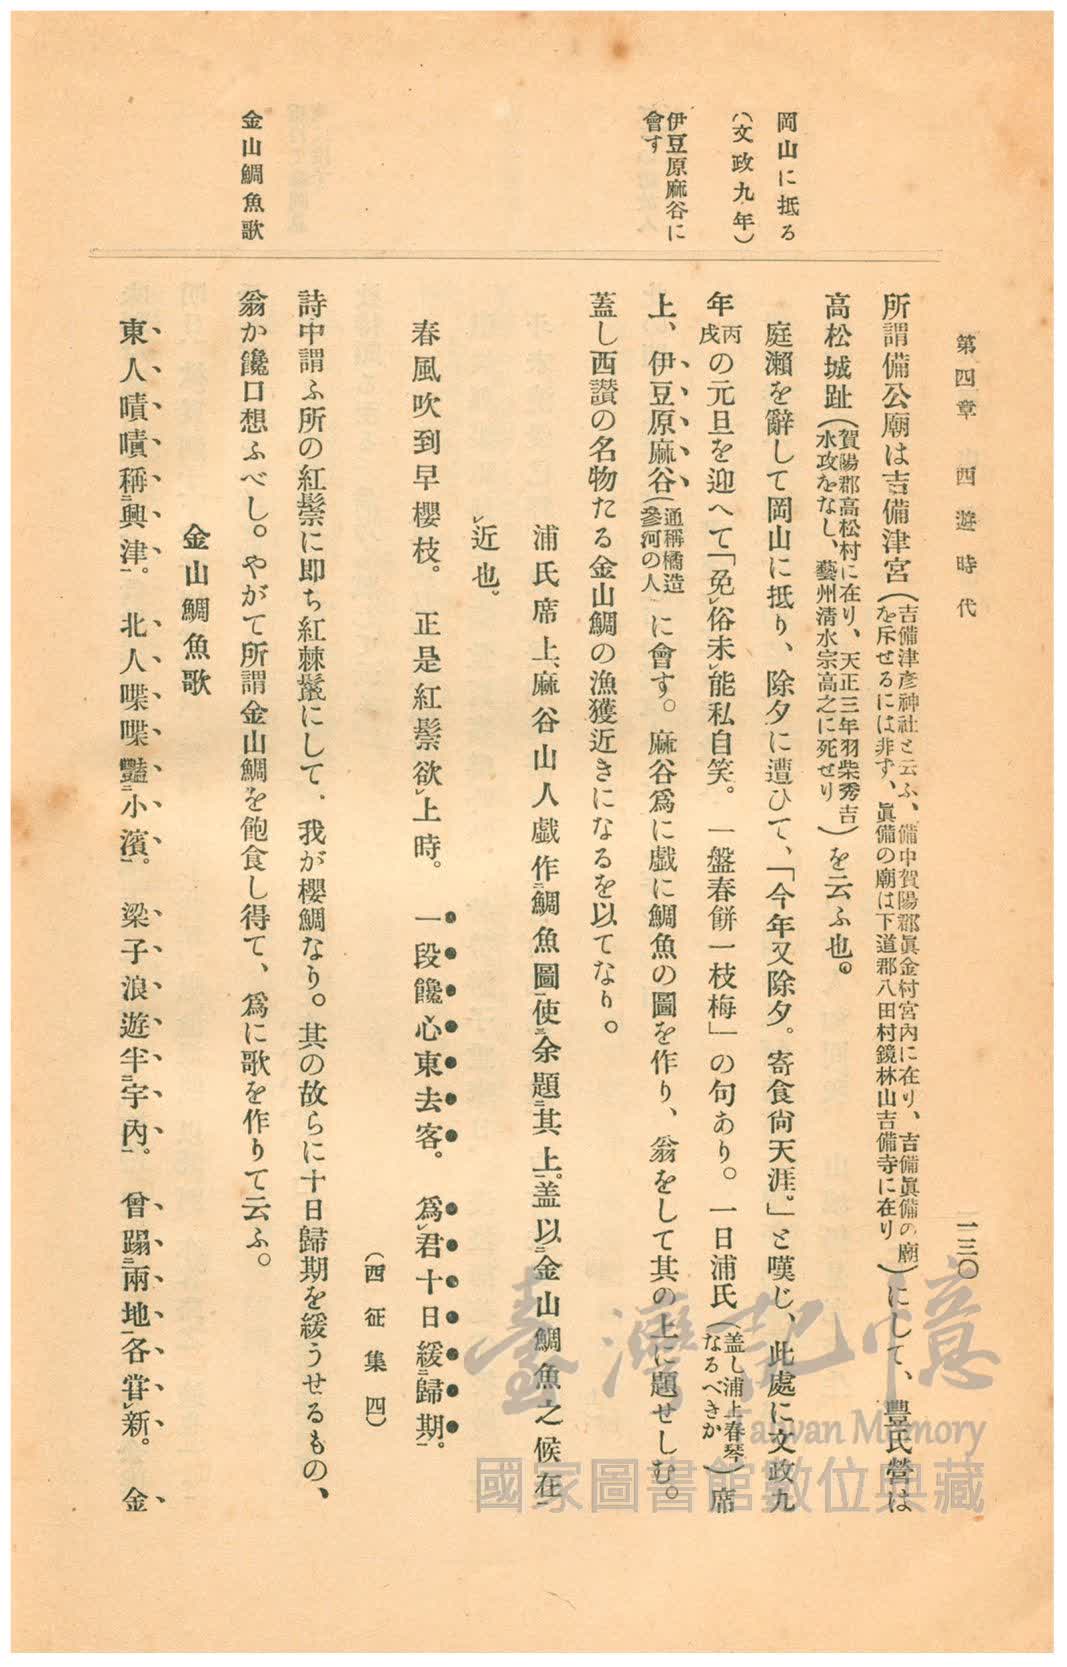 第四章 西遊時代
一三〇
岡山に抵る
（文政九年）
伊豆原麻谷に
會す
金山鯛魚歌
所謂備公廟は吉備津宮（吉備津彥神社と云ふ、備中賀陽郡眞金村宮內に在り、吉備眞備の廟を斥せるには非ず、眞備の廟は下道郡八田村鏡林山吉備寺に在り）にして、豊氏營は
高松城趾（賀陽郡高松村に在り、天正三年羽柴秀吉水攻をなし、藝州淸水宗高之に死せり）を云ふ也。
庭瀨を辭して岡山に抵り、除夕に遭ひて、「今年又除夕。寄食尙天涯。」と嘆じ、此處に文政九
年丙戌の元旦を迎へて「免レ俗未レ能私自笑。一盤春餠一枝梅」の句あり。一日浦氏（蓋し浦上春琴なるべきか）席
上、伊豆原麻谷（通稱橘造參河の人）に會す。麻谷爲に戲に鯛魚の圖を作り、翁をして其の上に題せしむ。
蓋し西讃の名物たる金山鯛の漁獲近きになるを以てなり。
浦氏席上、麻谷山人戲作二鯛魚圖一使三余題二其上。盖以二金山鯛魚之候在一
レ近也。
春風吹到早櫻枝。 正是紅鬃欲レ上時。 一段饞心東去客。 爲レ君十日緩二歸期一。
（西征集四）
詩中謂ふ所の紅鬃に即ち紅棘鬣にして、我が櫻鯛なり。其の故らに十日歸期を緩うせるもの、
翁か饞口想ふべし。やがて所謂金山鯛を飽食し得て、爲に歌を作りて云ふ。
金山鯛魚歌
東人嘖嘖稱二興津一。 北人喋喋豔二小濱一。 梁子浪遊半二宇內一。 曾蹋二兩地一各甞レ新。 金
臺灣記憶
Taiwan Memory
國家圖書館數位典藏